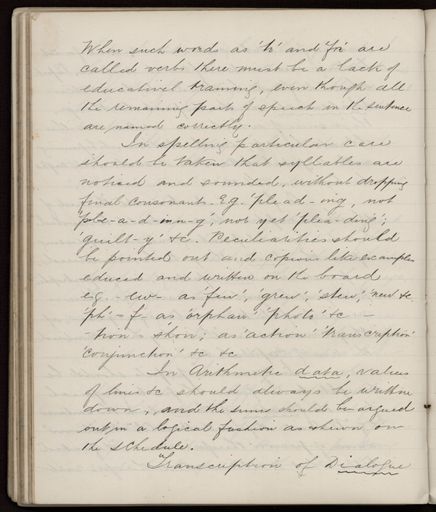 When such words as 'to' and 'for' are
called verbs there must be a lack of
educative training, even though all
the remaining parts of speech in the sentence
are named correctly.
In spelling particular care
should be taken that syllables are
noticed and sounded, without dropping
final consonants. E.g. 'plead-ing', not
'ple-a-d-i-n-g', nor yet 'plea-ding';
'guilt-y' &c. Peculiarities should
be pointed out and copious like examples
educed and written on the board
eg. -ew- as 'few', 'grew', 'stew', 'new' &c
'ph' -f- as 'orphan' 'photo' &c -
-tion - shon; as 'action' 'transcription'
'conjunction' &c &c
In Arithmetic data, values
of lines &c should always be written
down, and the sums should be argued
out in a logical fashion as shewn on
the schedule.
"Transcription of Dialogue